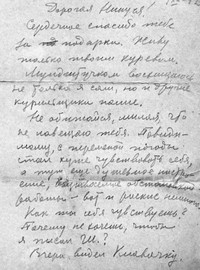 Дорогая Нинуся!
Сердечное спасибо тебе
за подарки. Живу
только твоим куревом.
восхищаюсь
не только я сам, но и другие
курильщики наши.
Не обижайся, милая, что
не навещаю тебя. Повиди-
мому, с переменой погоды
стал хуже чувствовать себя,
а тут еще
еще,
работы – вот и
Как ты себя чувствуешь?
Почему не хочешь, чтобы
я писал
Вчера видел Клавочку.